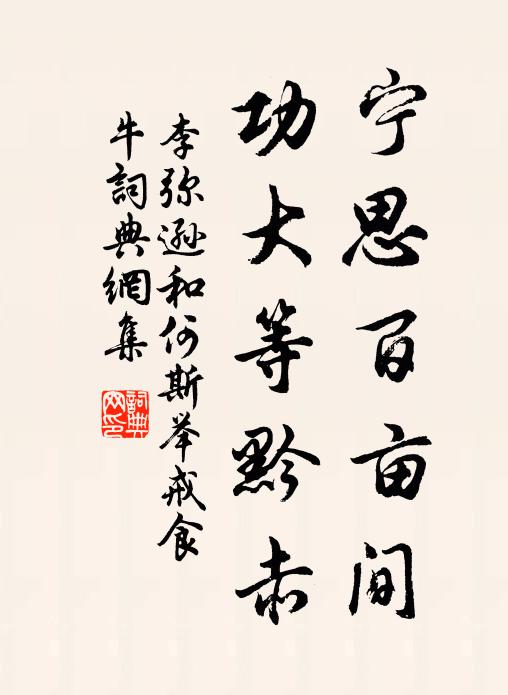 宁思百亩间
功大等黔赤
李弥逊和何斯举戒食
牛词典網集
詞典
网印